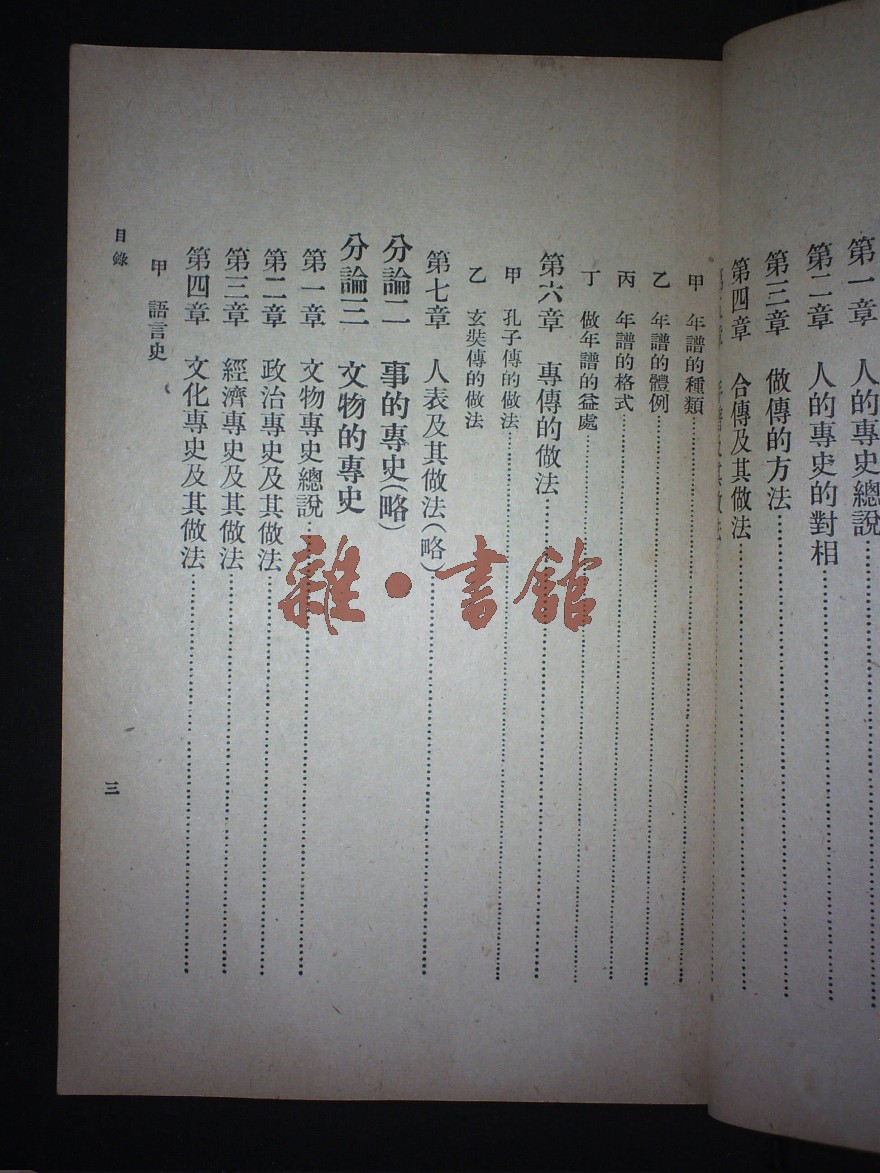 第一章　人的專史總說
第二章　人的專史的對相
第三章　做傳的方法
第四章　合傳及其做法
甲　年譜的種類
乙　年譜的體例
丙　年譜的格式
丁　做年譜的益處
第六章　專傳的做法
甲　孔子傳的做法
乙　玄奘傳的做法
第七章　人表及其做法(略)
分論二　事的專史(略)
分論三　文物的專史
第一章　文物專史總說
第二章　政治專史及其做法
第三章　經濟專史及其做法
第四章　文化專史及其做法
甲　語言史
目錄
三
雜·書館